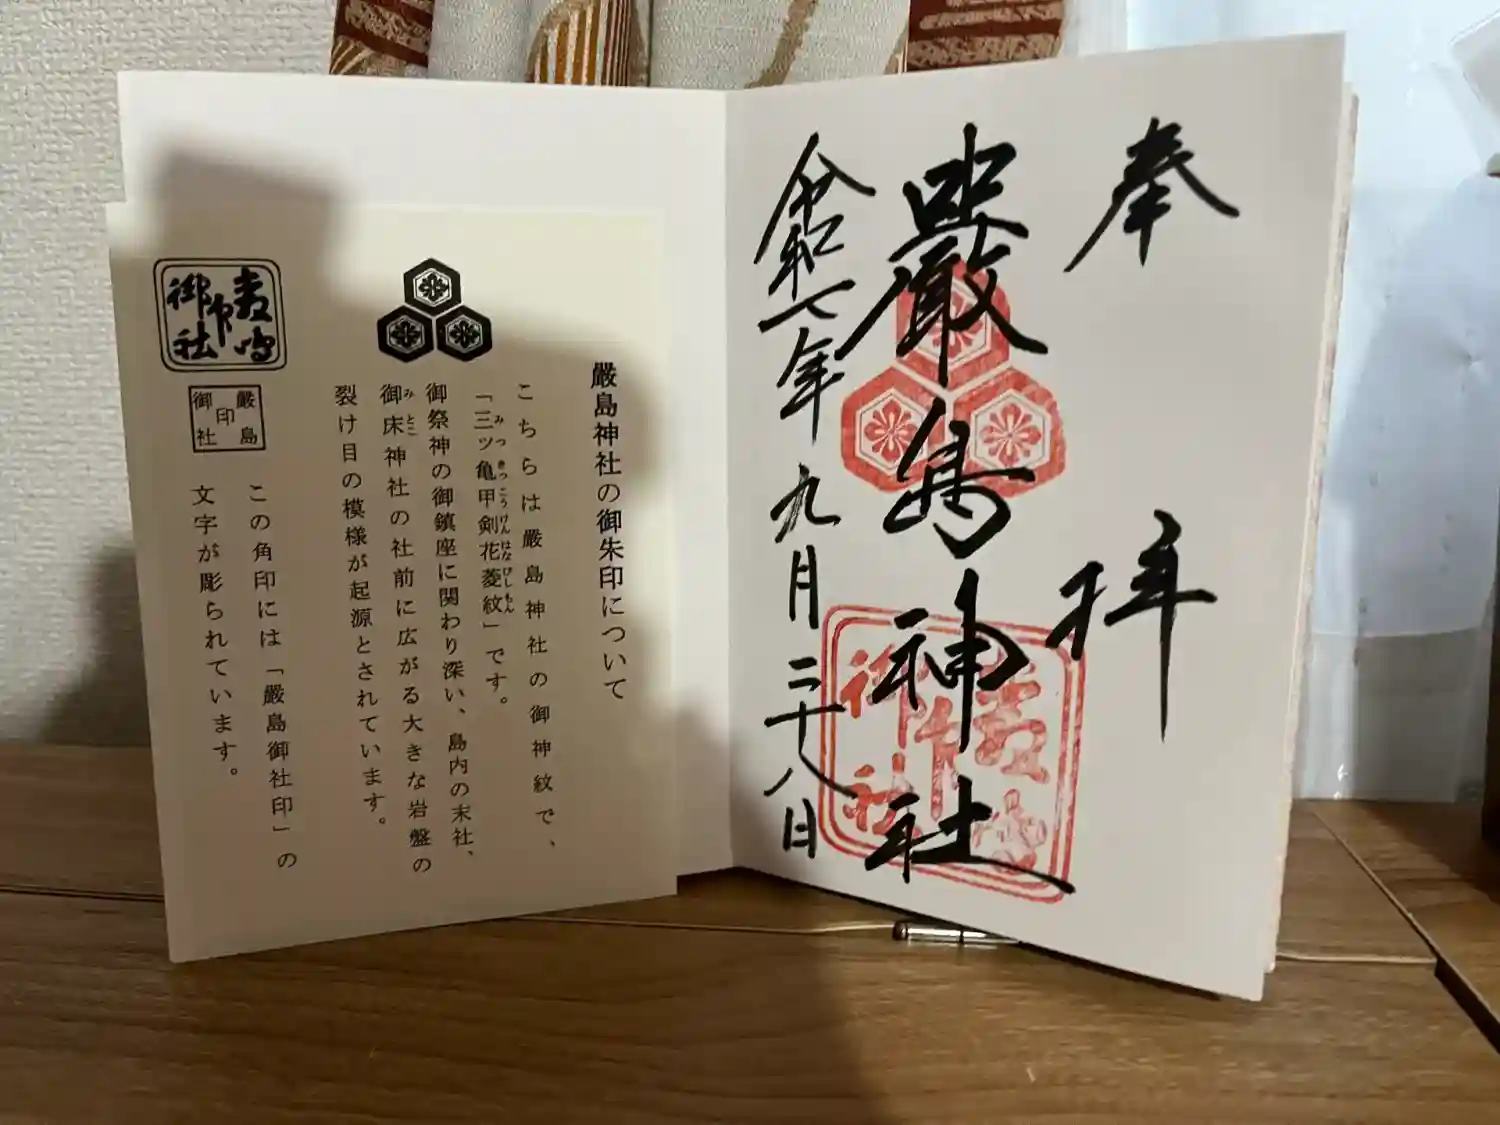 奉拝
厳島神社
令和七年九月二十八日
嚴島神社の御朱印について
こちらは嚴島神社の御神紋で、
「三ツ亀甲剣花菱紋」です。
みつきっこうけんはなびしもん
御祭神の御鎮座に関わり深い、島内の末社、
御床神社の社前に広がる大きな岩盤の
みとこ
裂け目の模様が起源とされています。
嚴島
印
御社
この角印には「嚴島御社印」の
文字が彫られています。